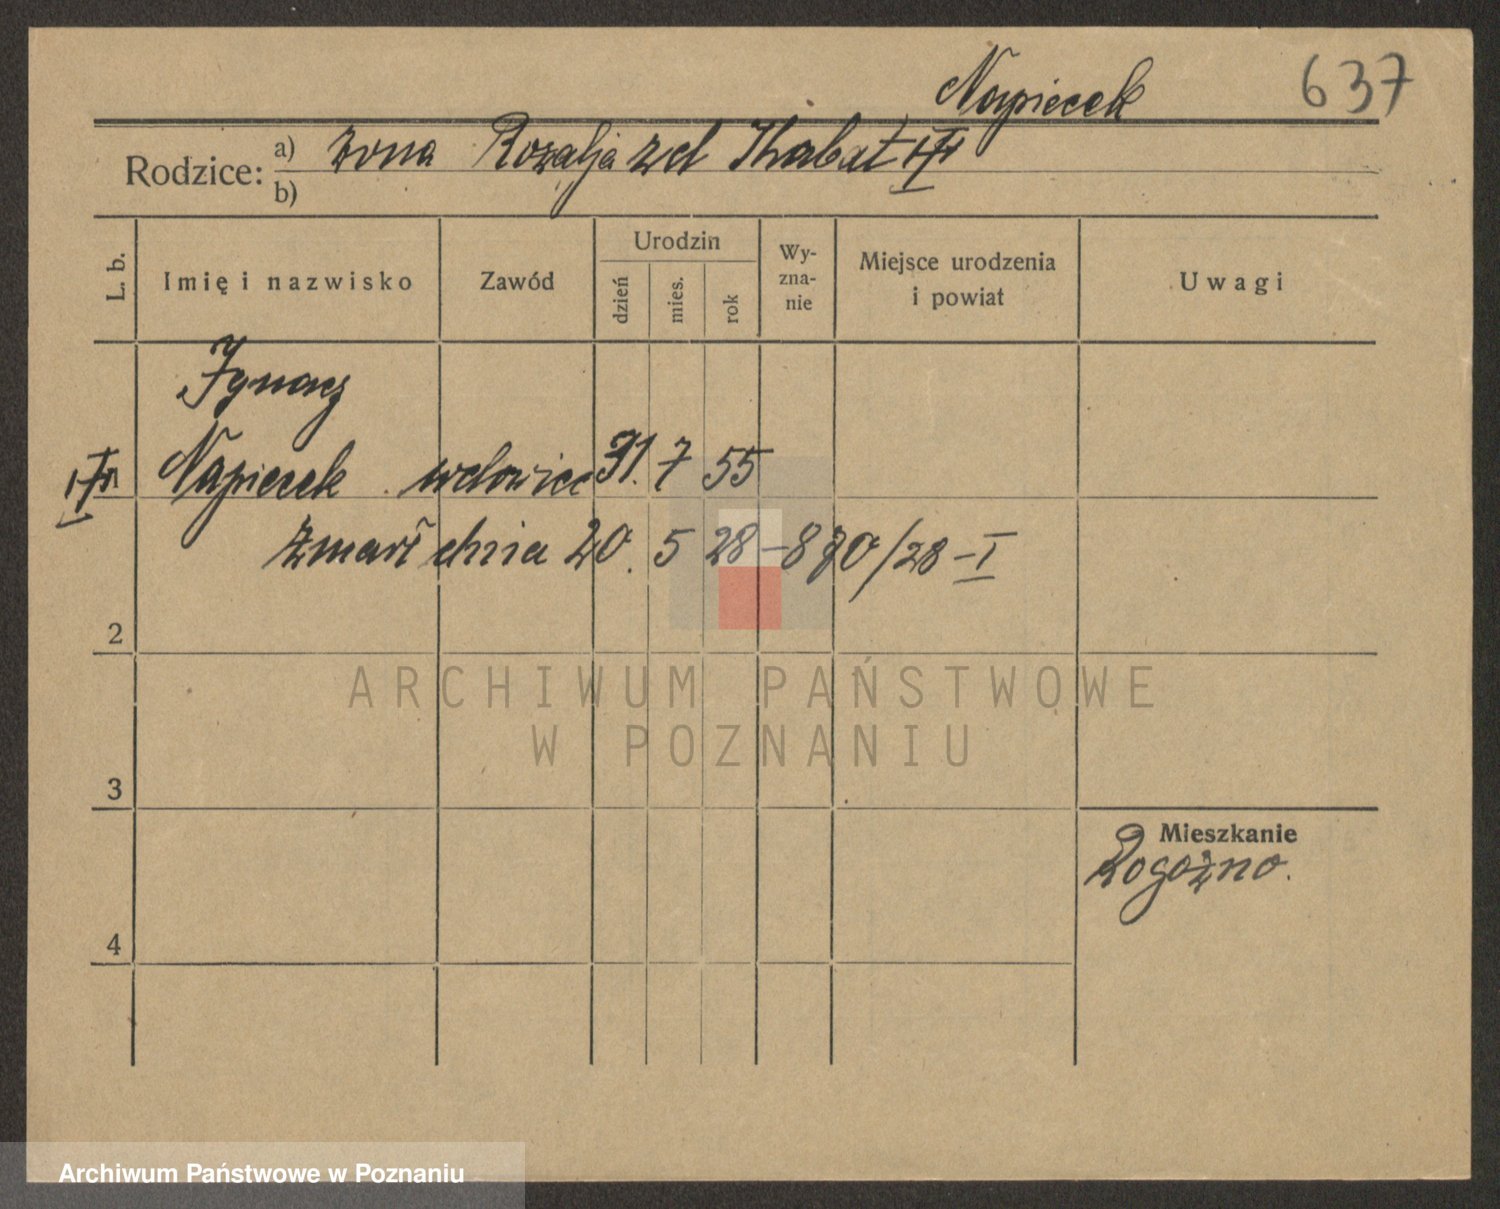 Napiecek 637
Rodzice: a) żona Rozalja zd Skabat
b)
L. b. Imię i nazwisko Zawód Urodzin dzień mies. rok Wy-zna-nie Miejsce urodzenia i powiat Uwagi
Ignacy
Napiecek wdowiec 31. 7 55
zmarł dnia 20. 5 28 – 870/28 – I
2
3
Mieszkanie
Rogoźno.
4
ARCHIWUM PAŃSTWOWE
W POZNANIU
Archiwum Państwowe w Poznaniu